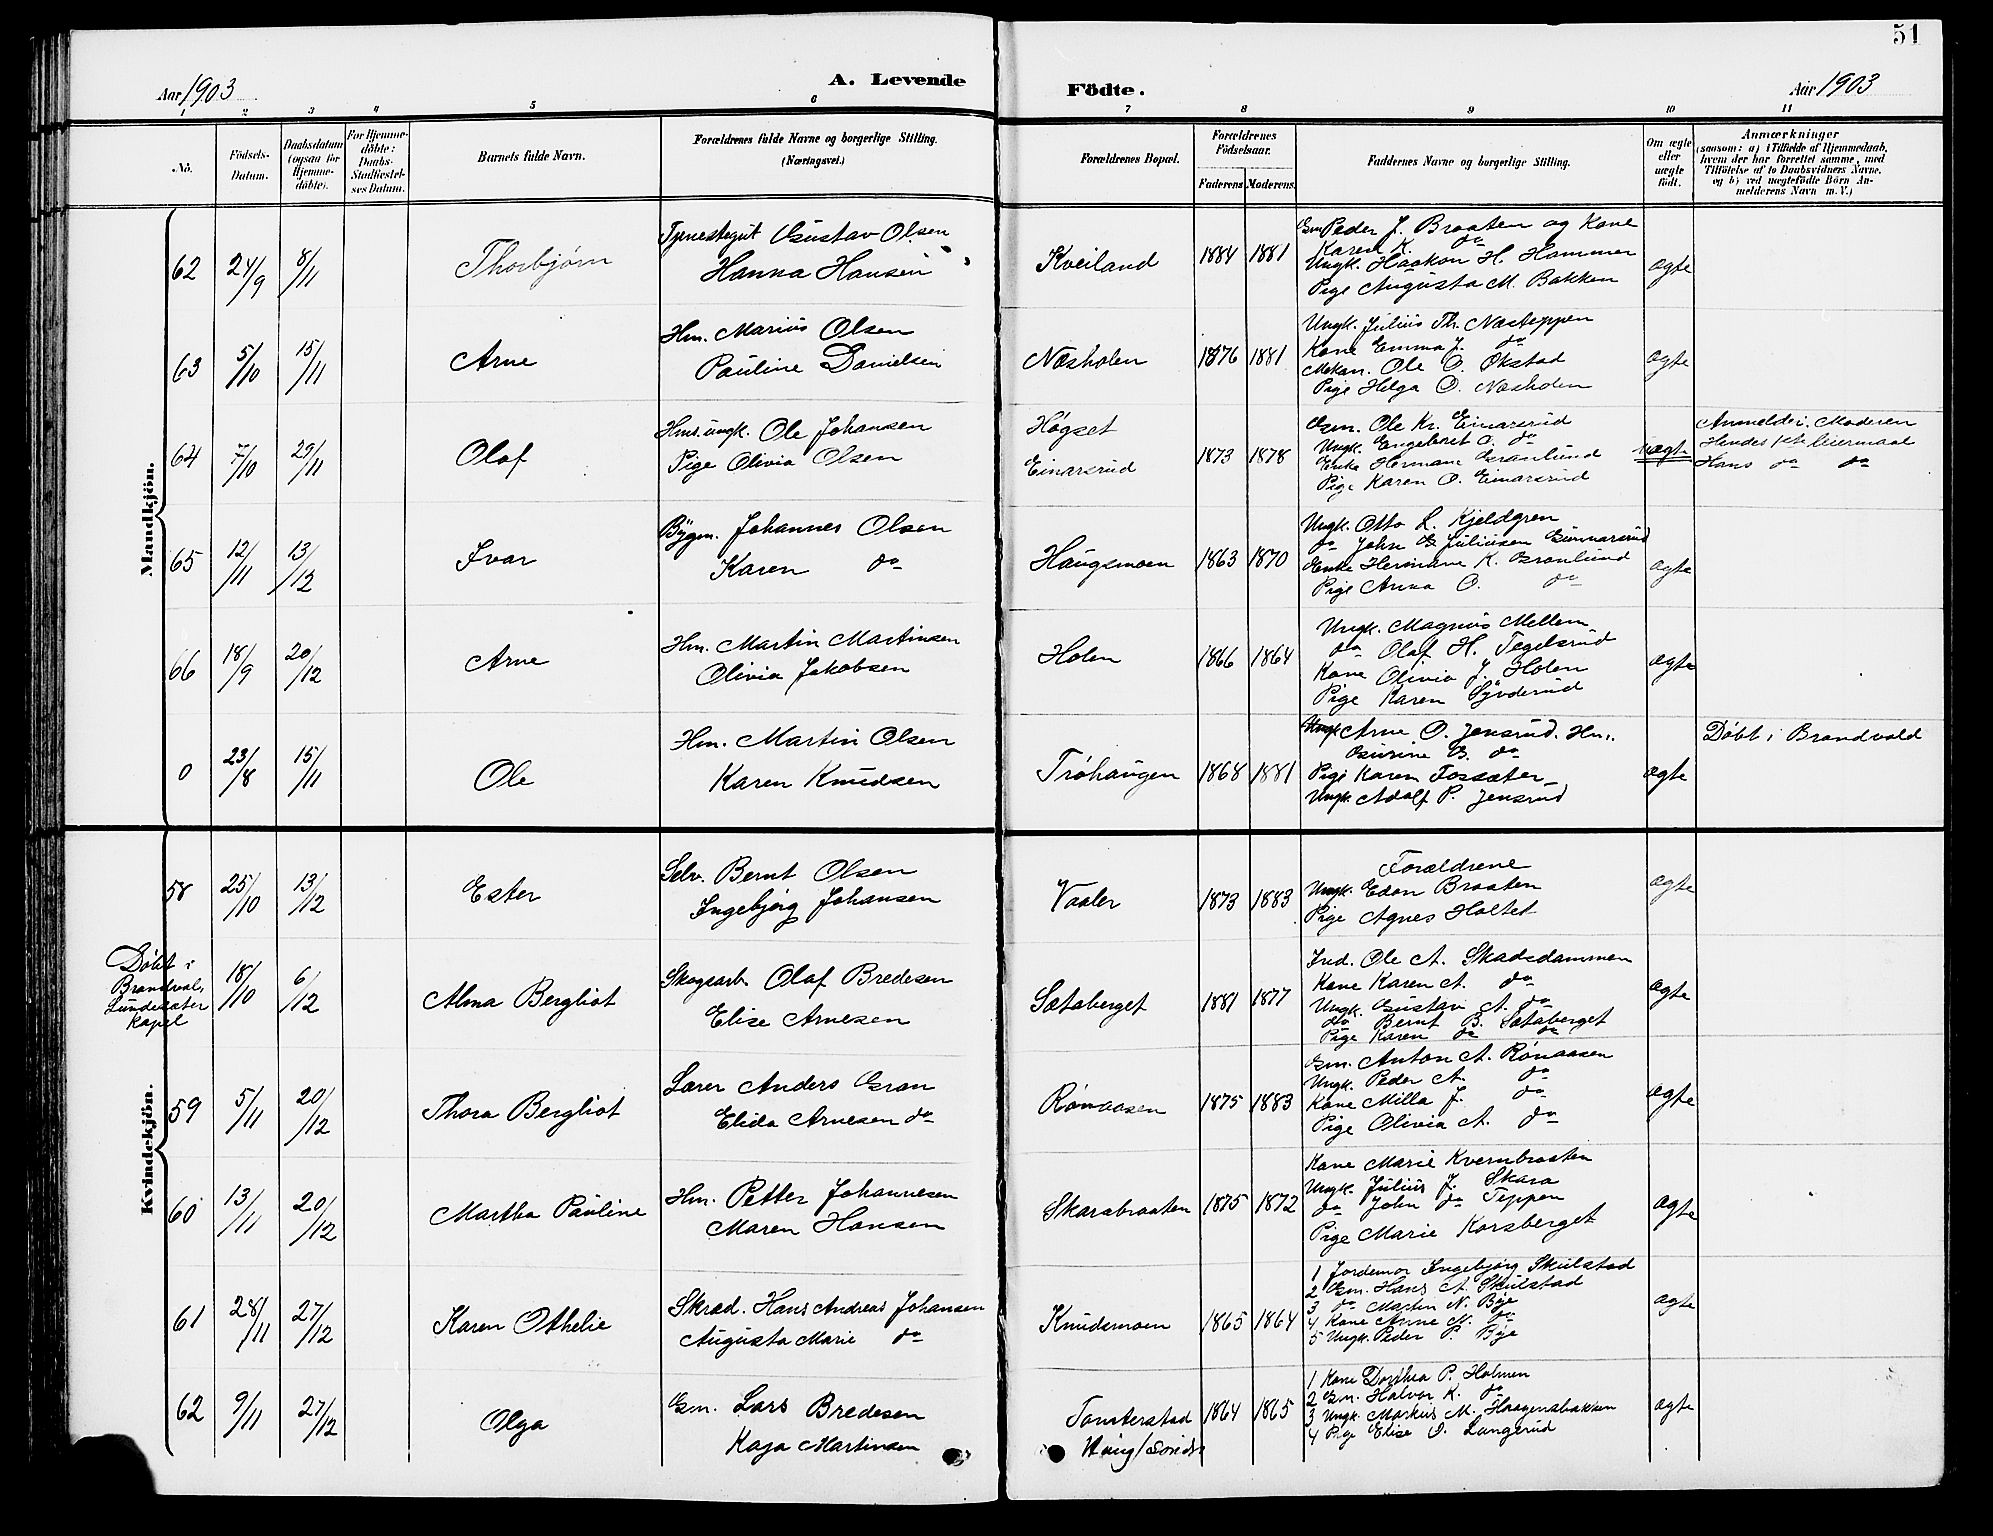 51
Aar 1903
A. Levende
Födte.
Aar 1903
1 2 3 4 5 6 7 8 9 10 11
No.
Födsels-
Datum.
Daabsdatum
(ogsaa for
Hjemme-
döbte).
For Hjemme-
döbte:
Daabs-
Stadfæstel-
ses Datum.
Barnets fulde Navn.
Forældrenes fulde Navne og borgerlige Stilling.
(Næringsvei.)
Forældrenes Bopæl.
Forældrenes
Födselsaar.
Faderens Moderens.
Faddernes Navne og borgerlige Stilling.
Om ægte
eller
uægte
födt.
Anmærkninger
(saasom: a) i Tilfælde af Hjemmedaab,
hvem der har forrettet samme, med
Tilföielse af to Daabsvidners Navne,
og b) ved uægtefödte Börn An-
melderens Navn m. V.)
Mandkjön.
62 24/9 8/11 Thorbjørn
Tjenestegut Gustav Olsen
Hanna Hansen
Kveiland 1884 1881
Gm Peder J. Braaten og Kone
Karen K. do
Ungk. Haakon H. Hammer
Pige Augusta M. Bakken
ægte
63 5/10 15/11 Arne
Hm. Marius Olsen
Pauline Danielsen
Næsholen 1876 1881
Ungk. Julius Th. Næsteppen
Kone Emma J. do
Mekan. Ole O. Økstad
Pige Helga O. Næsholen
ægte
64 7/10 29/11 Olaf
Hms. ungk. Ole Johansen
Pige Olivia Olsen
Høgset
Einarsrud
1873 1878
Gm. Ole Kr. Einarsrud
Ungk. Engebret O. do
Enke Hermane Granlund
Pige Karen O. Einarsrud
uægte
Anmelder: Moderen
Hendes 1ste leiermaal
Hans do do
65 12/11 13/12 Ivar
Bygm. Johannes Olsen
Karen do
Haugsmoen 1863 1870
Ungk. Otto L. Kjeldgren
do John G. Juliusen Gunnarsrud
Enke Hermane K. Granlund
Pige Anna O. do
ægte
66 18/9 20/12 Arne
Hm. Martin Martinsen
Olivia Jakobsen
Holen 1866 1864
Ungk. Magnus Mellem
do Olaf H. Tegelsrud
Kone Olivia J. Holen
Pige Karen Sønderud
ægte
0 23/8 15/11 Ole
Hm. Martin Olsen
Karen Knudsen
Trøhaugen 1868 1881
Arne O. Jensrud. Hm.
Gurine G. do
Pige Karen Fossæter
Ungk. Adolf P. Jensrud
ægte
Døbt i Brandvold
Kvindekjön.
58 25/10 13/12 Ester
Selv. Bernt Olsen
Ingebjørg Johansen
Vaaler 1873 1883
Forældrene
Ungk. Edon Braaten
Pige Agnes Holtet
ægte
Døbt i
Brandval,
Lundersæter
kapel
18/10 6/12 Alma Bergliot
Skogsarb. Olaf Bredesen
Elise Arnesen
Sætaberget 1881 1877
Ind. Ole A. Skadsdammen
Kone Karen A. do
Ungk. Gustav A. do
do Bernt B. Sætaberget
Pige Karen do do
ægte
59 5/11 20/12 Thora Bergliot
Lærer Anders Gran
Elida Arnesen do
Rønaasen 1875 1883
Gm. Anton A. Rønaasen
Ungk. Peder A. do
Kone Milla J. do
Pige Olivia A. do
ægte
60 13/11 20/12 Martha Pauline
Hm. Petter Johannesen
Maren Hansen
Skarabraaten 1875 1872
Kone Marie Kvernbraaten
Ungk. Julius J. Skara
do John do Teppen
Pige Marie Korsberget
ægte
61 28/11 27/12 Karen Othelie
Skræd. Hans Andreas Johansen
Augusta Marie do
Knudsmoen 1865 1864
1 Jordemor Ingebjørg Skulstad
2 Gm. Hans A. Skulstad
3 do Martin N. Bye
4 Kone Anne M. do
5 Ungk. Peder P. Bye
ægte
62 9/11 27/12 Olga
Gm. Lars Bredesen
Kaja Martinsen
Tomterstad
1864 1865
1 Kone Dorthea P. Holmen
2 Gm. Halvor K. do
3 Ungk. Markus M. Haagensbakken
4 Pige Elise O. Langerud
ægte